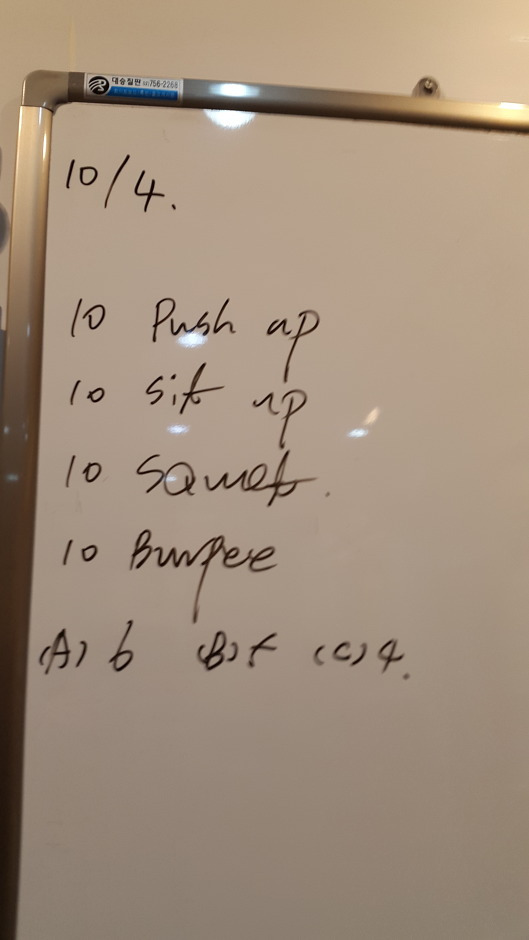 대승칠판 756-2268
10/4.
10 Push up
10 Sit up
10 Squat.
10 Burpee
(A) 6 (B) 5 (C) 4.